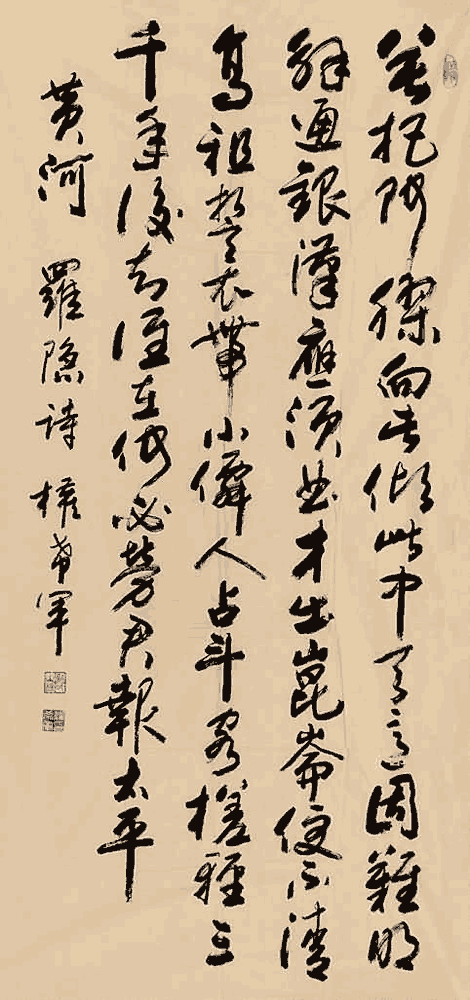 莫把阿膠向此傾此中天意固難明
解通銀漢應須曲才出崑崙便不清
高祖誓衣帶小僊人占斗客槎輕三
千年後知誰在何必勞君報太平
黃河 羅隱詩 權希軍